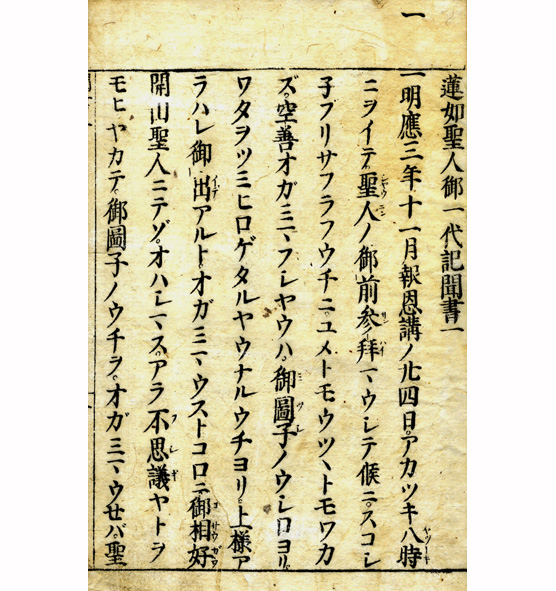 一
蓮如聖人御一代記聞書一
一明應三年十一月報恩講ノ廿四日。アカツキ八時
ニヲイテ。聖人ノ御前參拜マウシテ候ニ。スコシ
子ブリサフラフウチニ。ユメトモウツヽトモワカ
ズ。空善オガミマフシヤウハ。御圖子ノウシロヨリ。
ワタヲツミヒロゲタルヤウナルウチヨリ。上様ア
ラハレ御出アルト。オガミマウストコロニ。御相好
開山聖人ニテゾ。オハシマス。アラ不思議ヤトヲ
モヒ。ヤカテ。御圖子ノウチヲ。オガミマウせバ。聖